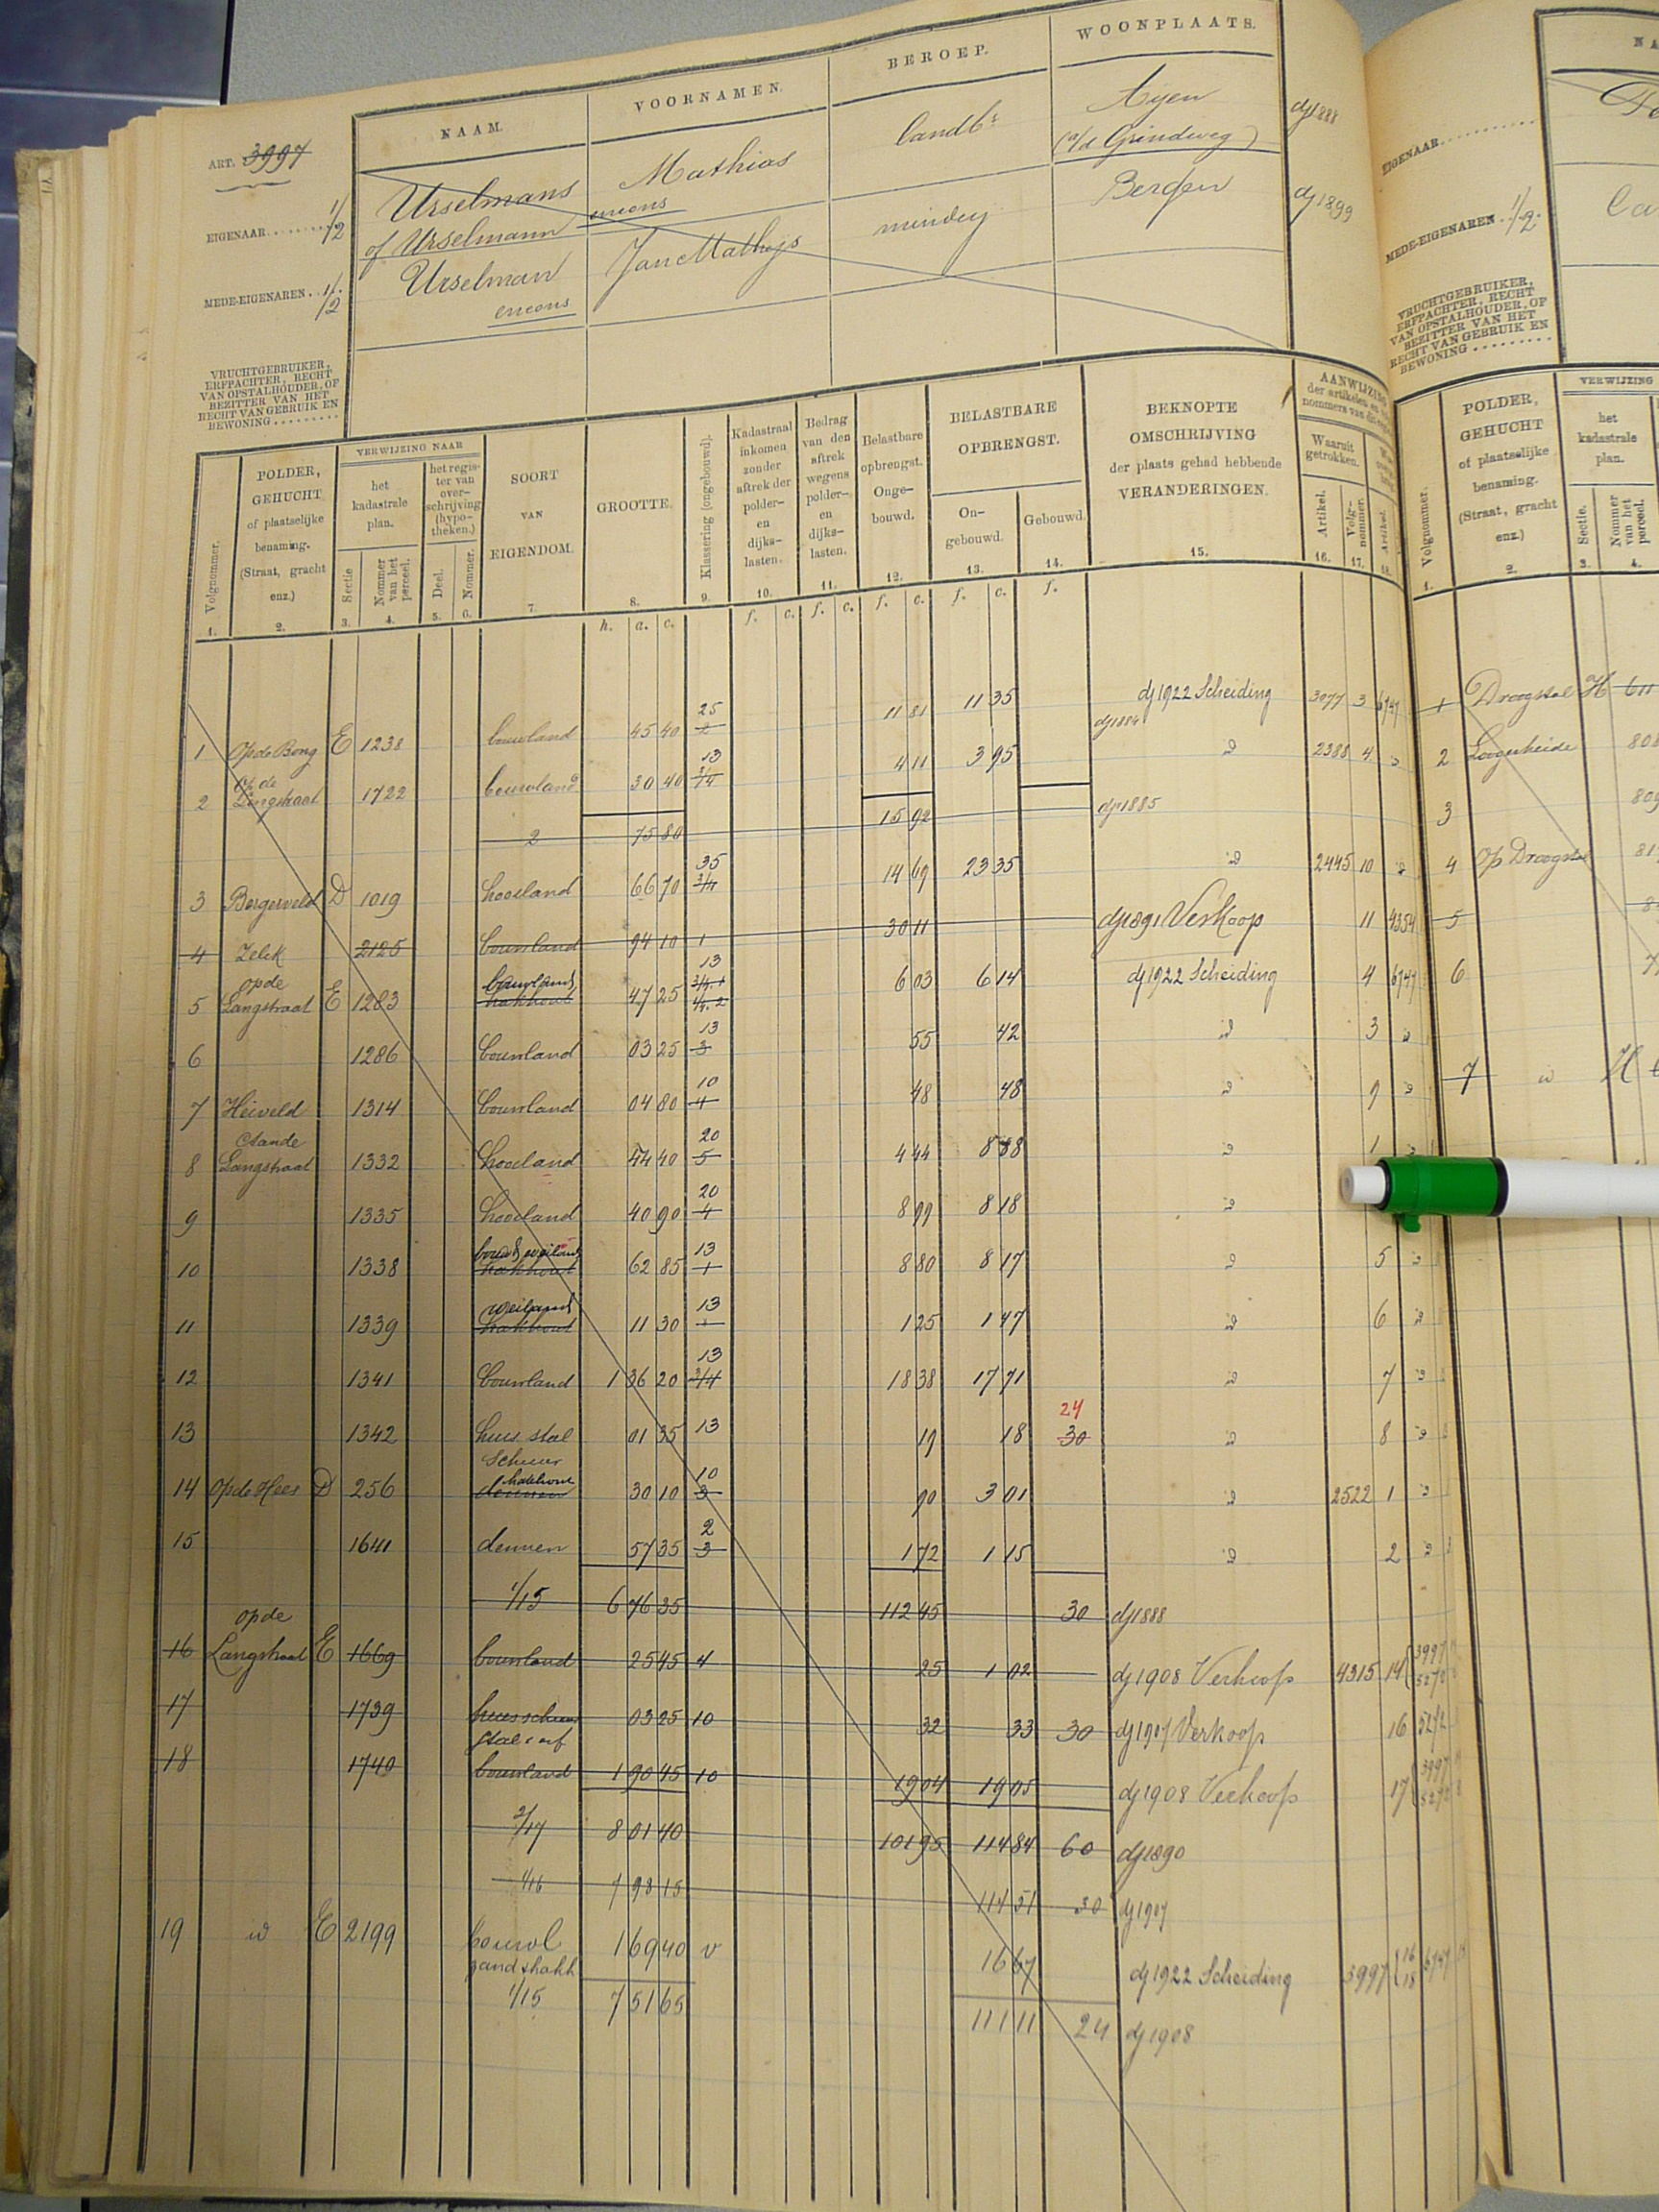 NAAM. VOORNAMEN. BEROEP. WOONPLAATS.
ART. 3997
EIGENAAR......... 1/2 Urselmans Mathias landbr Ayen dj 1888
of Urselmann encons (a/d Grindweg)
MEDE-EIGENAREN. 1/2 Urselman Jan Mathijs minderj Bergen dj 1899
encons
VRUCHTGEBRUIKER,
ERFPACHTER, RECHT
VAN OPSTALHOUDER, OF
BEZITTER VAN HET
RECHT VAN GEBRUIK EN
BEWONING.........
Volgnommer. 1.
POLDER, GEHUCHT of plaatselijke benaming. (Straat, gracht enz.) 2.
VERWIJZING NAAR
het kadastrale plan. Sectie 3. Nommer van het perceel. 4.
het register van overschrijving (hypotheken.) Deel. 5. Nommer. 6.
SOORT VAN EIGENDOM. 7.
GROOTTE. 8.
Klassering (ongebouwd). 9.
Kadastraal inkomen zonder aftrek der polder- en dijkslasten. 10.
Bedrag van den aftrek wegens polder- en dijkslasten. 11.
Belastbare opbrengst. Ongebouwd. 12.
BELASTBARE OPBRENGST. Ongebouwd. 13. Gebouwd. 14.
BEKNOPTE OMSCHRIJVING der plaats gehad hebbende VERANDERINGEN. 15.
Waaruit getrokken. Artikel. 16. Volgnommer. 17. Artikel. 18.
h. a. c. f. c. f. c. f. c. f. c. f.
1 Op de Bong E 1238 bouwland 45 40 25 2 11 81 11 35 dj 1922 Scheiding 3077 3 6747
dj 1884
2 Op de Langstraat 1722 bouwland 30 40 13 3/4 4 11 3 95 " 2388 4 "
2 75 80 15 92 dj 1885
3 Bergerveld D 1019 hooiland 66 70 35 3/4 14 69 23 35 " 2445 10 "
4 Zelek 2125 bouwland 94 10 1 30 11 dj 1891 Verkoop 11 4354
5 op de Langstraat E 1283 bouwland hakhout 47 25 13 6 03 6 14 dj 1922 Scheiding 4 6747
6 1286 bouwland 03 25 13 3 55 42 " 3 "
7 Heiveld 1314 bouwland 04 80 10 4 48 48 " 9 "
8 Langstraat 1332 hooiland 44 40 20 5 4 44 8 88 " 1 "
9 1335 hooiland 40 90 20 4 8 99 8 18 "
10 1338 hakhout 62 85 13 1 8 80 8 17 " 5 "
11 1339 weiland hakhout 11 30 13 1 1 25 1 47 " 6 "
12 1341 bouwland 1 36 20 13 3/4 18 38 17 71 " 7 "
13 1342 huis stal schuur 01 35 13 19 18 24 30 " 8 "
14 op de Hees D 256 hakhout dennen 30 10 10 3 90 3 01 " 2522 1 "
15 1641 dennen 57 35 2 3 1 72 1 15 " 2 "
1/15 6 76 35 112 45 30 dj 1888
16 op de Langstraat E 1669 bouwland 25 45 4 25 1 02 dj 1908 Verkoop 4315 14 3997 5272
17 1739 huis schuur stal erf 03 25 10 32 33 30 dj 1907 Verkoop 16 5272
18 1740 bouwland 1 90 45 10 19 04 19 05 dj 1908 Verkoop 17 3997 5272
2/17 8 01 40 101 95 114 84 60 dj 1890
1/16 7 98 15 114 51 30 dj 1907
19 id E 2199 bouwl 1 69 40 v 16 67 dj 1922 Scheiding 3997 16 18 6747
1/15 7 51 65 111 11 24 dj 1908
EIGENAAR
MEDE-EIGENAREN 1/2
VRUCHTGEBRUIKER,
ERFPACHTER, RECHT
VAN OPSTALHOUDER, OF
BEZITTER VAN HET
RECHT VAN GEBRUIK EN
BEWONING.........
Volgnommer. 1.
POLDER, GEHUCHT of plaatselijke benaming. (Straat, gracht enz.) 2.
VERWIJZING
het kadastrale plan. Sectie. 3. Nommer van het perceel. 4.
1 Droogstal H 611
2 Lagerheide 808
3 809
4 op Droogstal
5
6
7 id H